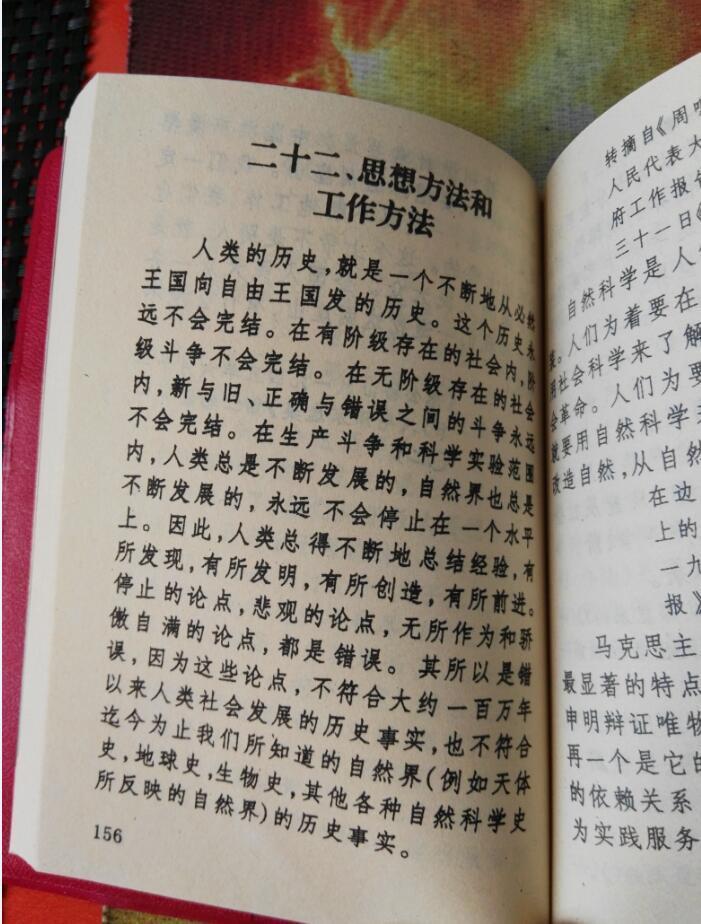 二十二、思想方法和
工作方法
人类的历史,就是一个不断地从必然
王国向自由王国发的历史。这个历史永
远不会完结。在有阶级存在的社会内,阶
级斗争不会完结。在无阶级存在的社会
内,新与旧、正确与错误之间的斗争永远
不会完结。在生产斗争和科学实验范围
内,人类总是不断发展的,自然界也总是
不断发展的,永远 不会停止在一个水平
上。因此,人类总得不断地总结经验,有
所发现,有所发明,有所创造,有所前进。
停止的论点,悲观的论点,无所作为和骄
傲自满的论点,都是错误。其所以是错
误,因为这些论点,不符合大约一百万年
以来人类社会发展的历史事实,也不符合
迄今为止我们所知道的自然界(例如天体
史,地球史,生物史,其他各种自然科学史
所反映的自然界)的历史事实。
156
转摘自《周
人民代表大
府工作报告
三十一日《
自然科学是人
。人们为着要在
用社会科学来了解
会革命。人们为要
就要用自然科学
改造自然,从自然
在边
上的
一九
报》
马克思主
最显著的特点
申明辩证唯物
再一个是它的
的依赖关系
为实践服务